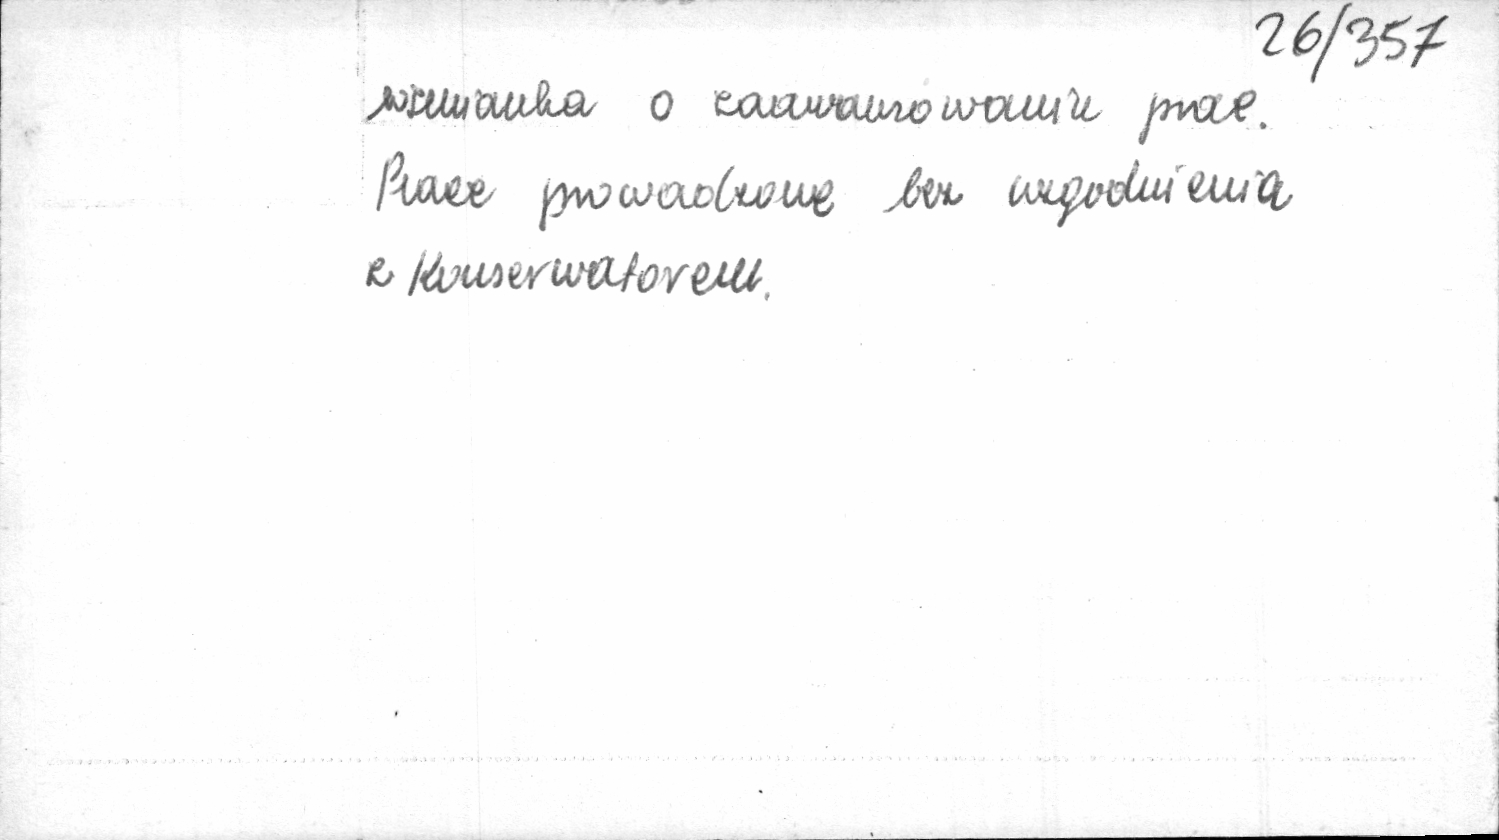 26/357
wzmianka o zaawansowaniu prac.
Prace prowadzone bez uzgodnienia
z Konserwatorem.